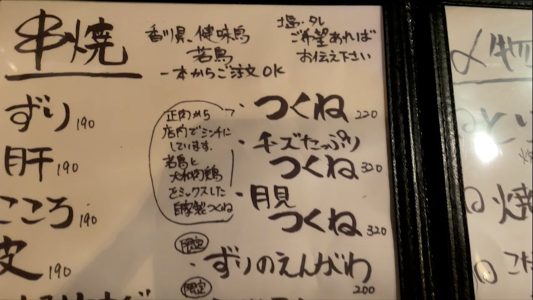 串焼
香川県、健味鳥
若鳥
一本からご注文OK
塩・タレ
ご希望あれば
お伝え下さい
ずり 190
肝 190
こころ 190
皮 190
正肉から
店内でミンチに
しています。
若鳥と
大和肉鶏
をミックスした
自家製つくね
・つくね 220
・チーズたっぷり
つくね 320
・月見
つくね 320
限定
・ずりのえんがわ 200
限定
〆物